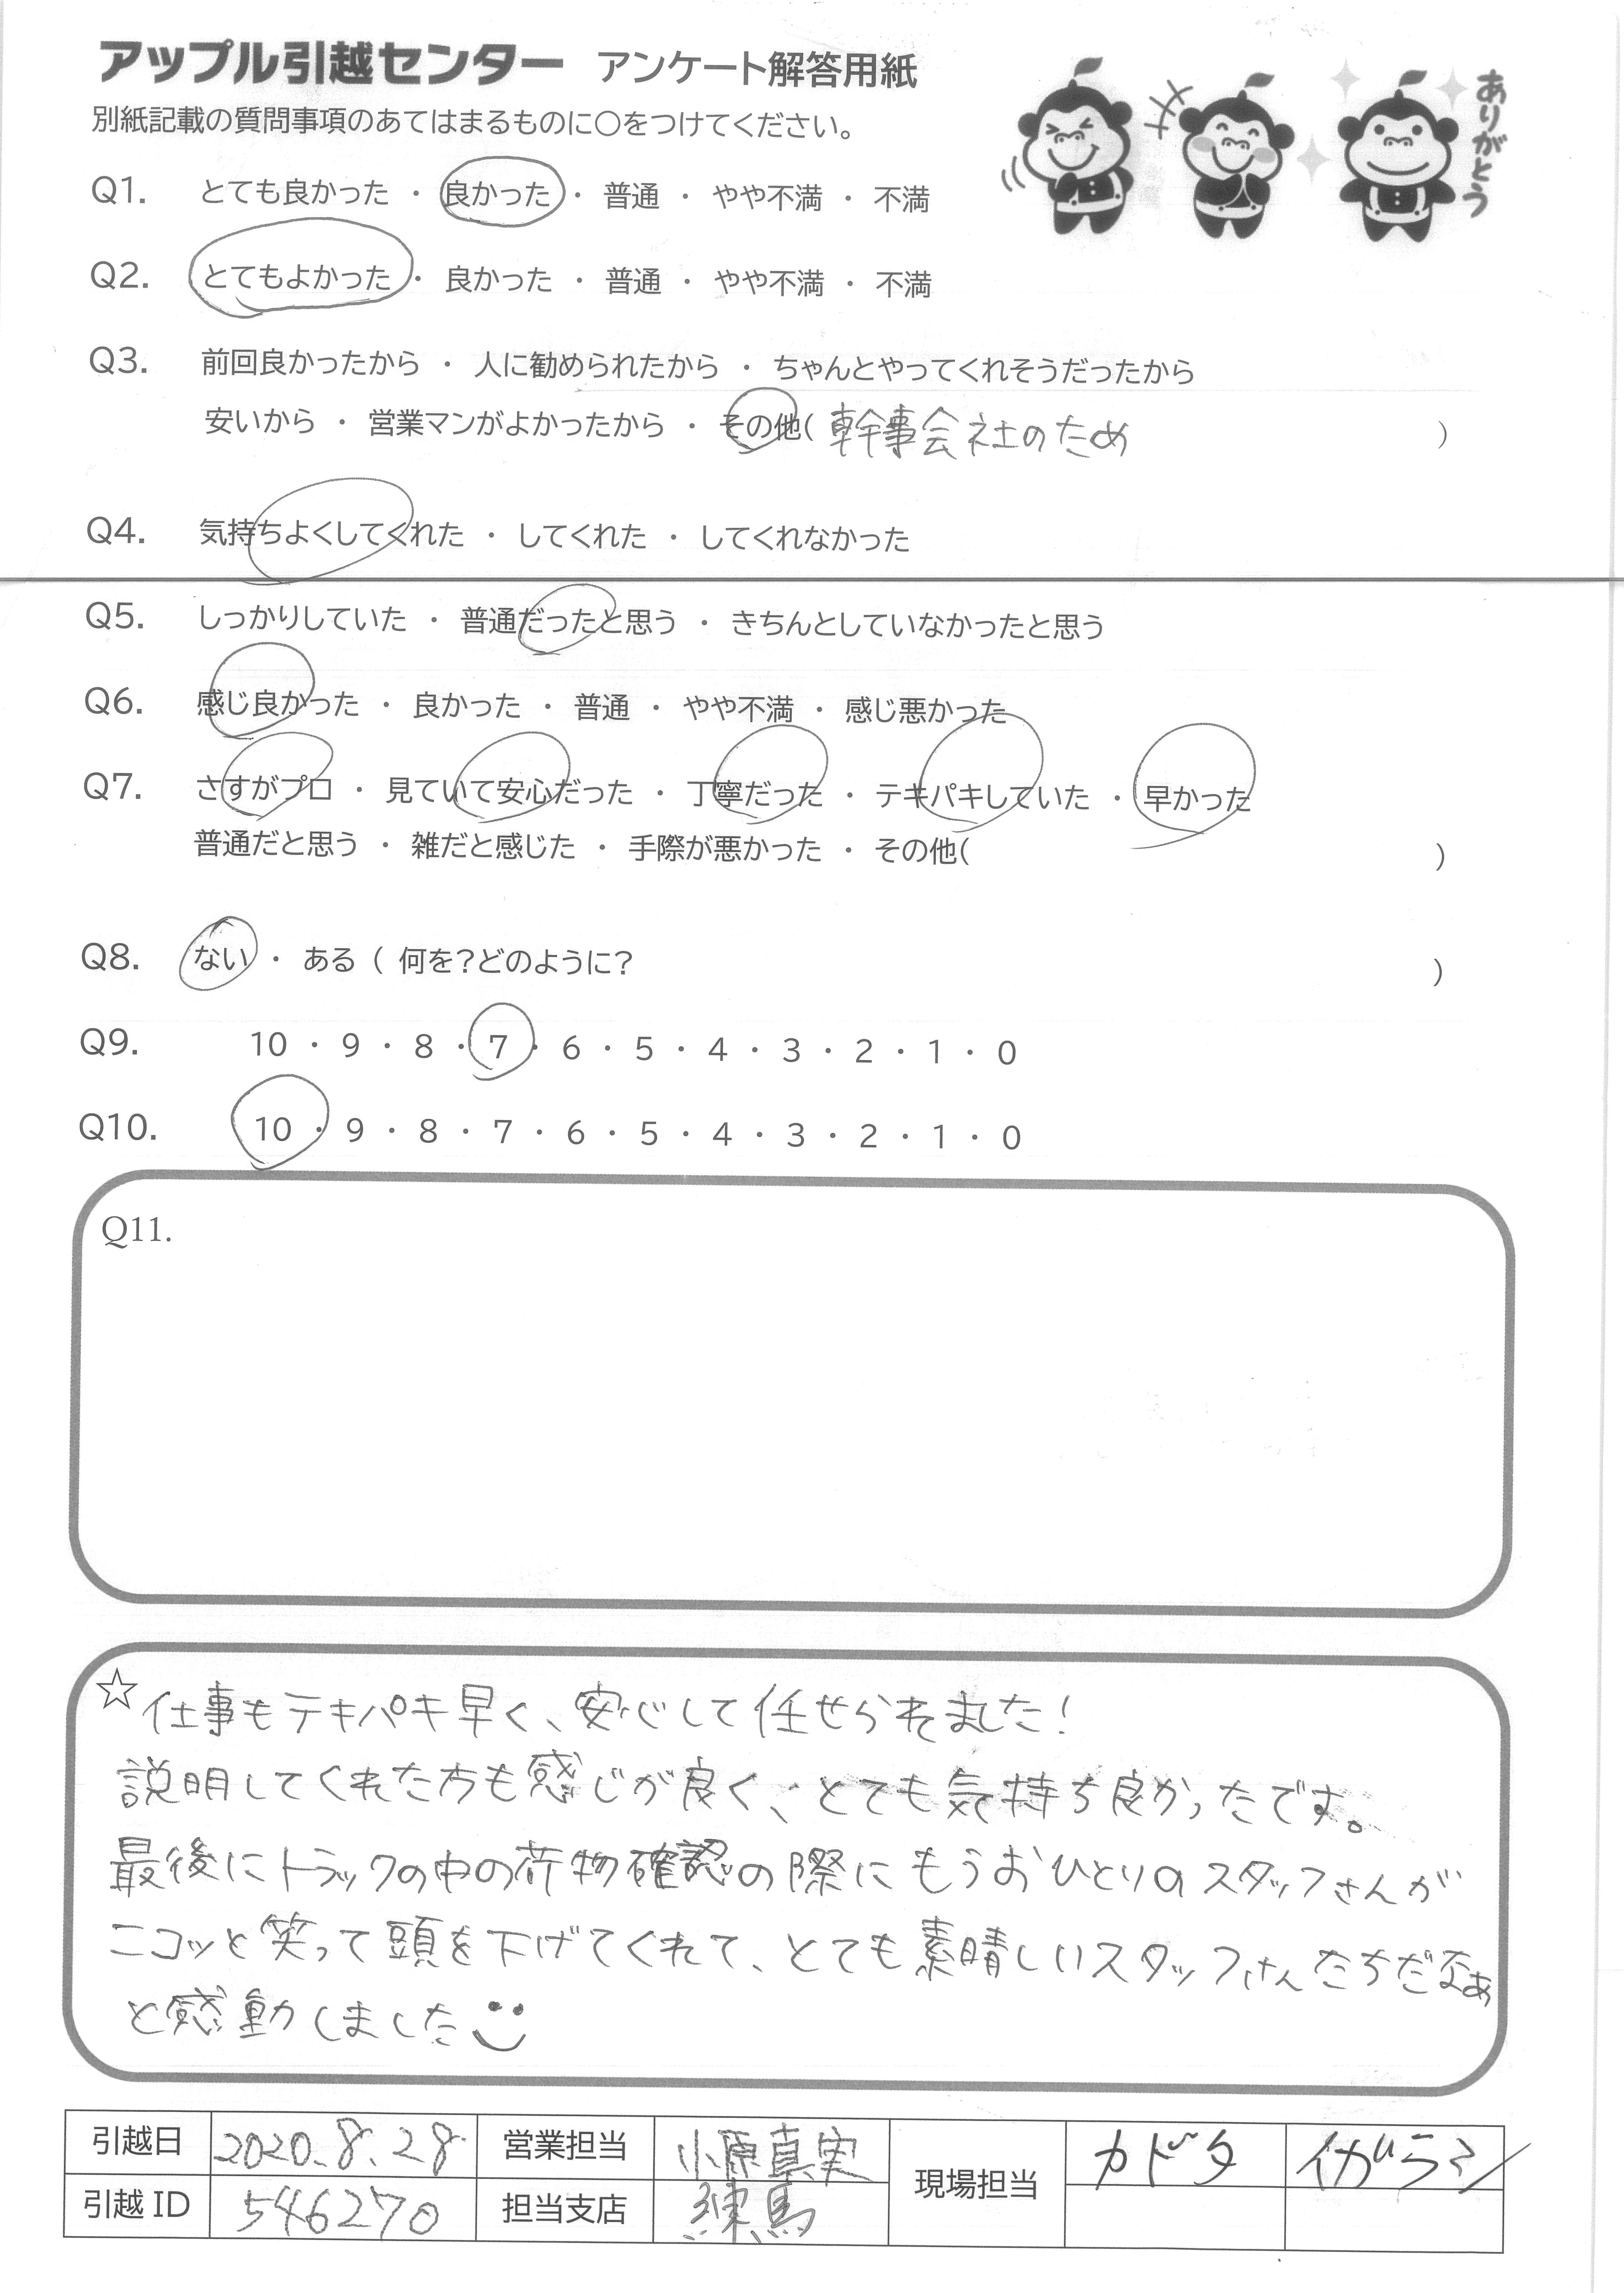 アップル引越センター アンケート解答用紙
ありがとう
別紙記載の質問事項のあてはまるものに○をつけてください。
Q1. とても良かった ・ 良かった ・ 普通 ・ やや不満 ・ 不満
Q2. とてもよかった ・ 良かった ・ 普通 ・ やや不満 ・ 不満
Q3. 前回良かったから ・ 人に勧められたから ・ ちゃんとやってくれそうだったから
安いから ・ 営業マンがよかったから ・ その他( 幹事会社のため )
Q4. 気持ちよくしてくれた ・ してくれた ・ してくれなかった
Q5. しっかりしていた ・ 普通だったと思う ・ きちんとしていなかったと思う
Q6. 感じ良かった ・ 良かった ・ 普通 ・ やや不満 ・ 感じ悪かった
Q7. さすがプロ ・ 見ていて安心だった ・ 丁寧だった ・ テキパキしていた ・ 早かった
普通だと思う ・ 雑だと感じた ・ 手際が悪かった ・ その他( )
Q8. ない ・ ある ( 何を?どのように? )
Q9. 10 ・ 9 ・ 8 ・ 7 ・ 6 ・ 5 ・ 4 ・ 3 ・ 2 ・ 1 ・ 0
Q10. 10 ・ 9 ・ 8 ・ 7 ・ 6 ・ 5 ・ 4 ・ 3 ・ 2 ・ 1 ・ 0
Q11.
☆仕事もテキパキ早く、安心して任せられました!
説明してくれた方も感じが良く、とても気持ち良かったです。
最後にトラックの中の荷物確認の際にもうおひとりのスタッフさんが
ニコッと笑って頭を下げてくれて、とても素晴しいスタッフさんたちだなぁ
と感動しました
引越日 2020.8.28 営業担当 小原真実 現場担当 カドタ イガラシ
引越 ID 546270 担当支店 練馬